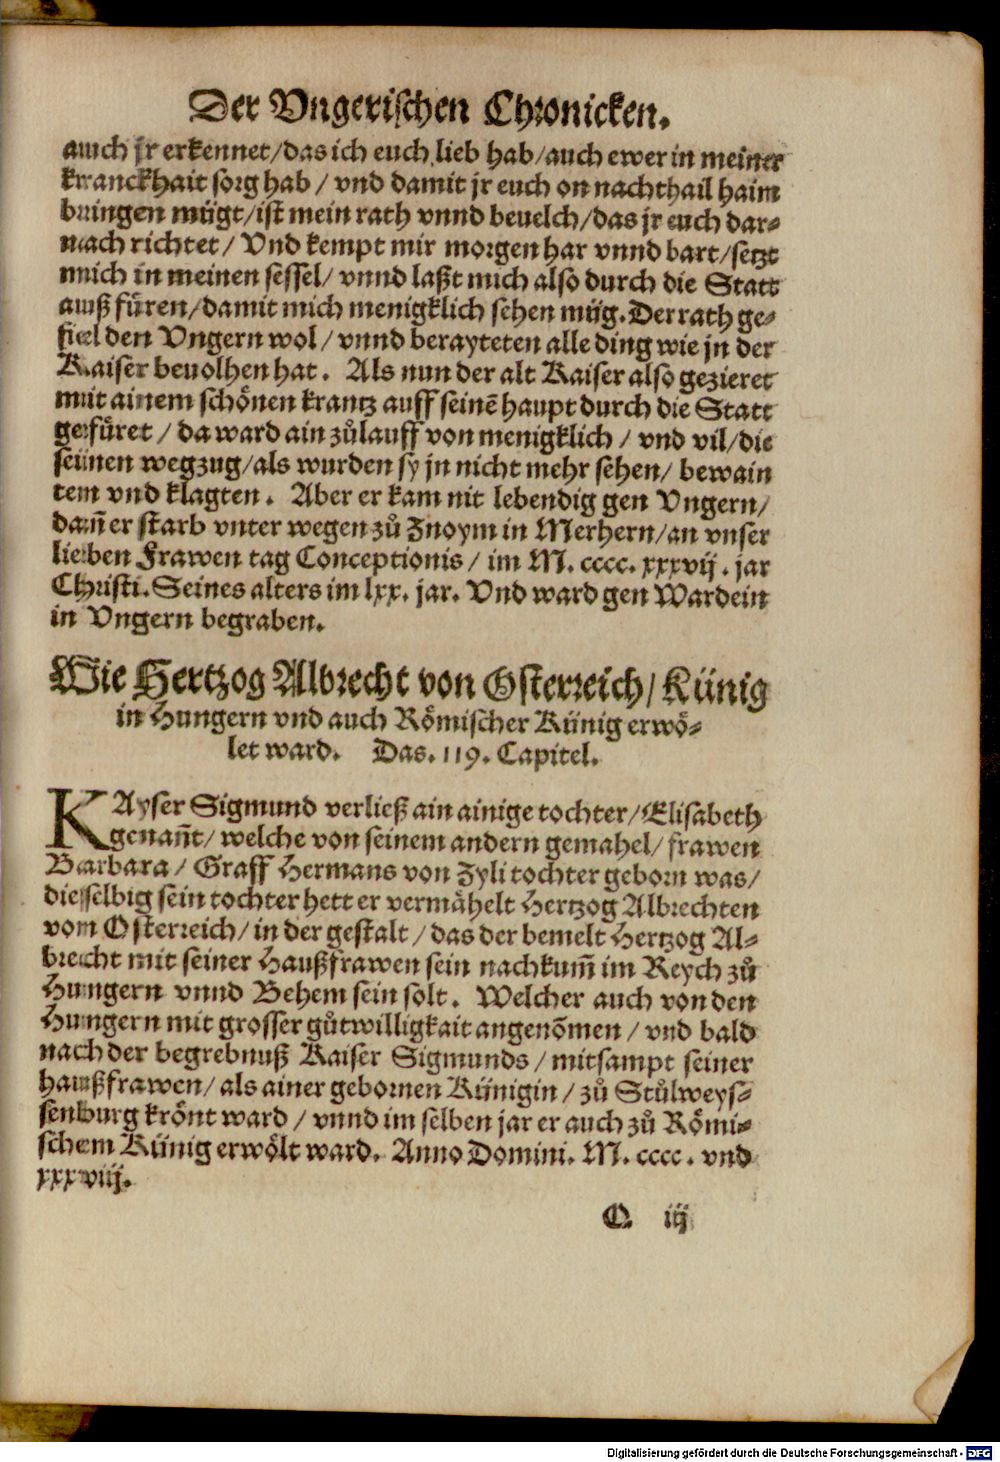 Der Vngerischen Chronicken.
auch jr erkennet/das ich euch lieb hab/auch ewer in meiner
kranckhait sorg hab / vnd damit jr euch on nachthail haim
bringen mügt/ist mein rath vnnd beuelch/das jr euch dar⸗
nach richtet/ Vnd kempt mir morgen har vnnd bart/setzt
mich in meinen sessel/ vnnd laßt mich also durch die Statt
auß füren/damit mich menigklich sehen müg. Der rath ge⸗
fiel den Vngern wol/ vnnd berayteten alle ding wie jn der
Kaiser beuolhen hat. Als nun der alt Kaiser also gezieret
mit ainem schönen krantz auff seinē haupt durch die Statt
gefüret / da ward ain zůlauff von menigklich / vnd vil/die
seinen wegzug/als wurden sy jn nicht mehr sehen/ bewain
ten vnd klagten. Aber er kam nit lebendig gen Vngern/
dañ er starb vnter wegen zů Znoym in Merhern/an vnser
lieben Frawen tag Conceptionis / im M. cccc. xxxvij. jar
Christi. Seines alters im lxx. jar. Vnd ward gen Wardein
in Vngern begraben.
Wie Hertzog Albrecht von Osterreich/ Künig
in Hungern vnd auch Römischer Künig erwö⸗
let ward. Das. 119. Capitel.
KAyser Sigmund verließ ain ainige tochter/Elisabeth
genañt/ welche von seinem andern gemahel/ frawen
Barbara/ Graff Hermans von Zyli tochter geborn was/
dieselbig sein tochter hett er vermähelt Hertzog Albrechten
vom Osterreich/ in der gestalt/ das der bemelt Hertzog Al⸗
brecht mit seiner Haußfrawen sein nachkum̄ im Reych zů
Hungern vnnd Behem sein solt. Welcher auch von den
Hungern mit grosser gůtwilligkait angenōmen / vnd bald
nach der begrebnuß Kaiser Sigmunds / mitsampt seiner
haußfrawen/ als ainer gebornen Künigin / zů Stůlweys⸗
senburg krönt ward / vnnd im selben jar er auch zů Römi⸗
schem Künig erwölt ward. Anno Domini. M. cccc. vnd
xxxviij.
Q iij
Digitalisierung gefördert durch die Deutsche Forschungsgemeinschaft - DFG